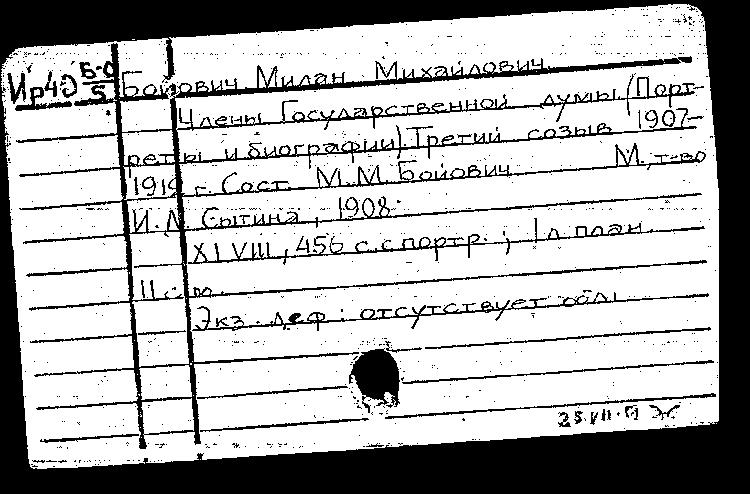 Ир40 Б-0/5 Бойович Милан Михайлович.
Члены Государственной думы (Порт-
реты и биографии). Третий созыв 1907-
1912 г. Сост. М.М. Бойович. М., т-во
И.Д. Сытина, 1908.
XLVIII, 456 с. с портр.; 1 л. план.
Экз. деф: отсутствует обл.
25.VII.